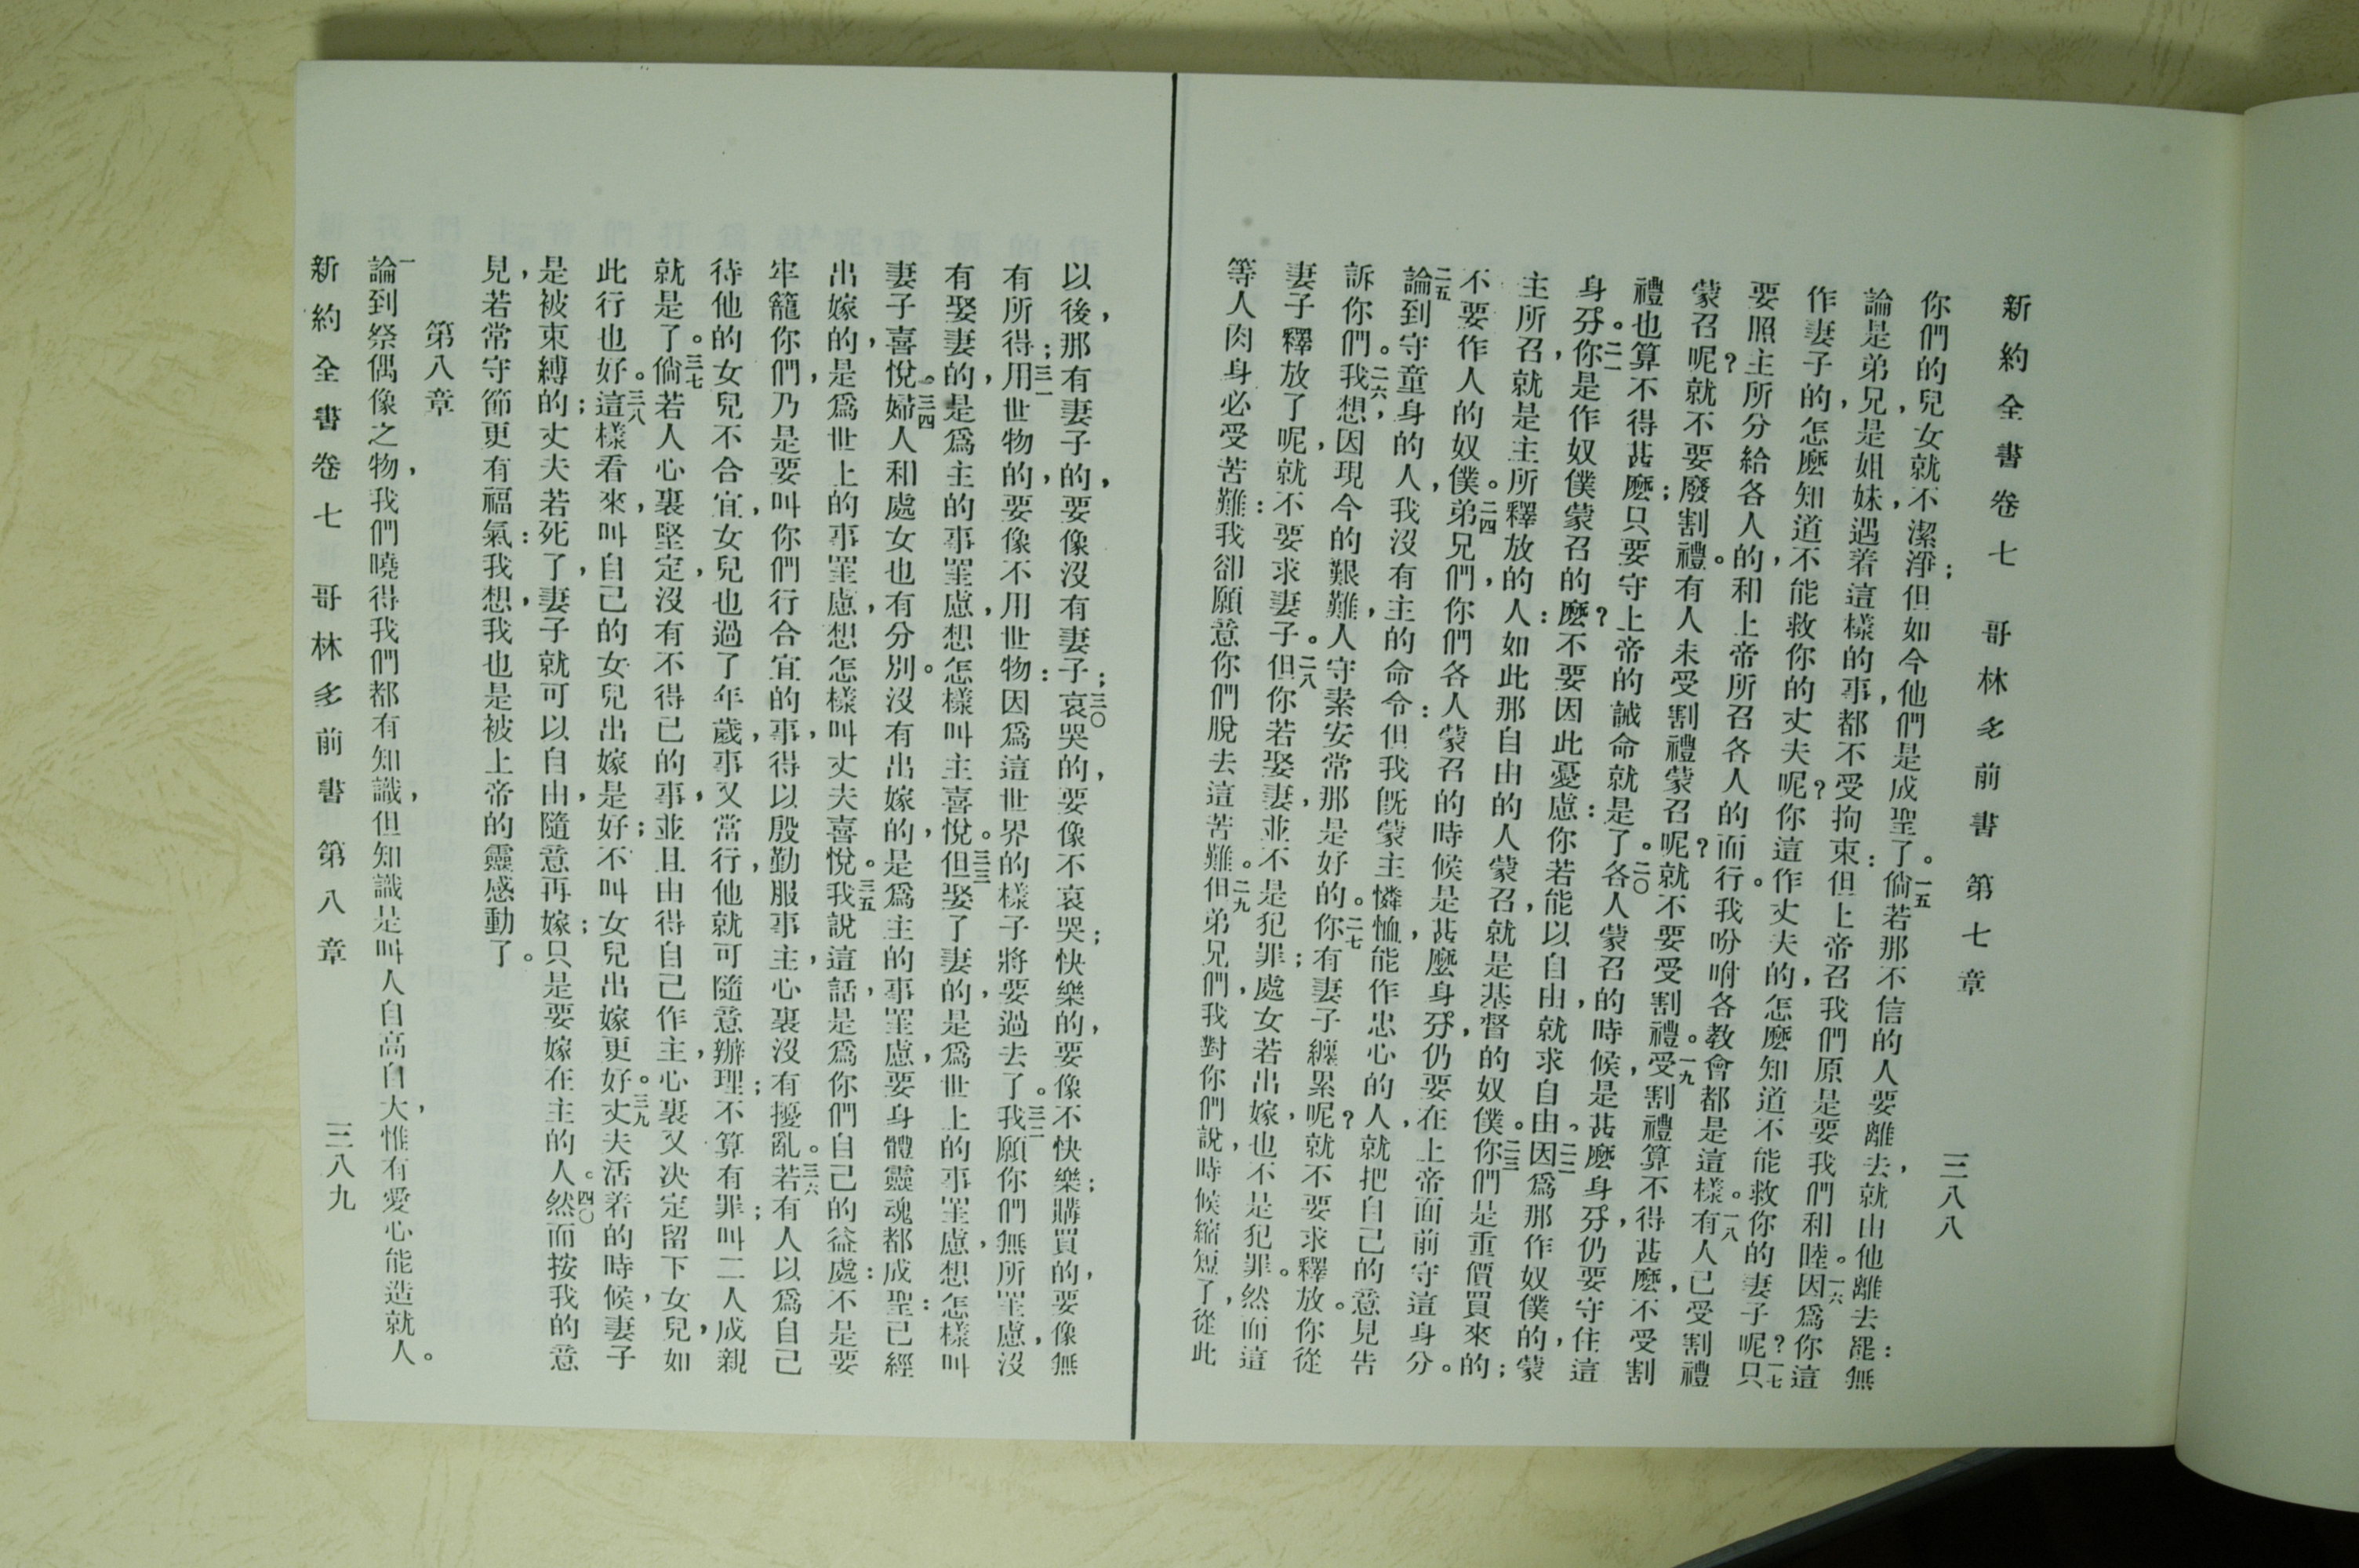 新約全書卷七 哥林多前書 第七章 三八八
你們的兒女就不潔淨；但如今他們是成聖了。一五倘若那不信的人要離去，就由他離去罷：無
論是弟兄，是姐妹，遇着這樣的事，都不受拘束：但上帝召我們原是要我們和睦。一六因爲你這
作妻子的，怎麼知道不能救你的丈夫呢？你這作丈夫的，怎麼知道不能救你的妻子呢？一七只
要照主所分給各人的，和上帝所召各人的而行。我吩咐各教會都是這樣。一八有人已受割禮
蒙召呢？就不要廢割禮。有人未受割禮蒙召呢？就不要受割禮。一九受割禮算不得甚麼，不受割
禮也算不得甚麼；只要守上帝的誡命就是了。二〇各人蒙召的時候，是甚麼身分，仍要守住這
身分。二一你是作奴僕蒙召的麼？不要因此憂慮：你若能以自由，就求自由。二二因爲那作奴僕的，蒙
主所召，就是主所釋放的人：如此那自由的人蒙召，就是基督的奴僕。二三你們是重價買來的；
不要作人的奴僕。二四弟兄們，你們各人蒙召的時候是甚麼身分，仍要在上帝面前守這身分。
二五論到守童身的人，我沒有主的命令：但我旣蒙主憐恤，能作忠心的人，就把自己的意見告
訴你們。二六我想，因現今的艱難，人守素安常那是好的。二七你有妻子纏累呢？就不要求釋放。你從
妻子釋放了呢，就不要求妻子。二八但你若娶妻，並不是犯罪；處女若出嫁，也不是犯罪。然而這
等人肉身必受苦難：我卻願意你們脫去這苦難。二九但弟兄們，我對你們說，時候縮短了，從此
以後，那有妻子的，要像沒有妻子；三〇哀哭的，要像不哀哭；快樂的，要像不快樂；購買的，要像無
有所得；三一用世物的，要像不用世物：因爲這世界的樣子將要過去了。三二我願你們無所罣慮，沒
有娶妻的，是爲主的事罣慮，想怎樣叫主喜悅。三三但娶了妻的，是爲世上的事罣慮，想怎樣叫
妻子喜悅。三四婦人和處女也有分別。沒有出嫁的，是爲主的事罣慮，要身體靈魂都成聖：已經
出嫁的，是爲世上的事罣慮，想怎樣叫丈夫喜悅。三五我說這話，是爲你們自己的益處：不是要
牢籠你們，乃是要叫你們行合宜的事，得以殷勤服事主，心裏沒有擾亂。三六若有人以爲自己
待他的女兒不合宜，女兒也過了年歲，事又當行，他就可隨意辦理；不算有罪；叫二人成親
就是了。三七倘若人心裏堅定，沒有不得已的事，並且由得自己作主，心裏又决定留下女兒，如
此行也好。三八這樣看來，叫自己的女兒出嫁是好；不叫女兒出嫁更好。三九丈夫活着的時候，妻子
是被束縛的；丈夫若死了，妻子就可以自由，隨意再嫁；只是要嫁在主的人。四〇然而按我的意
見，若常守節更有福氣：我想，我也是被上帝的靈感動了。
第八章
一論到祭偶像之物，我們曉得我們都有知識，但知識是叫人自高自大，惟有愛心能造就人。
新約全書卷七 哥林多前書 第八章 三八九